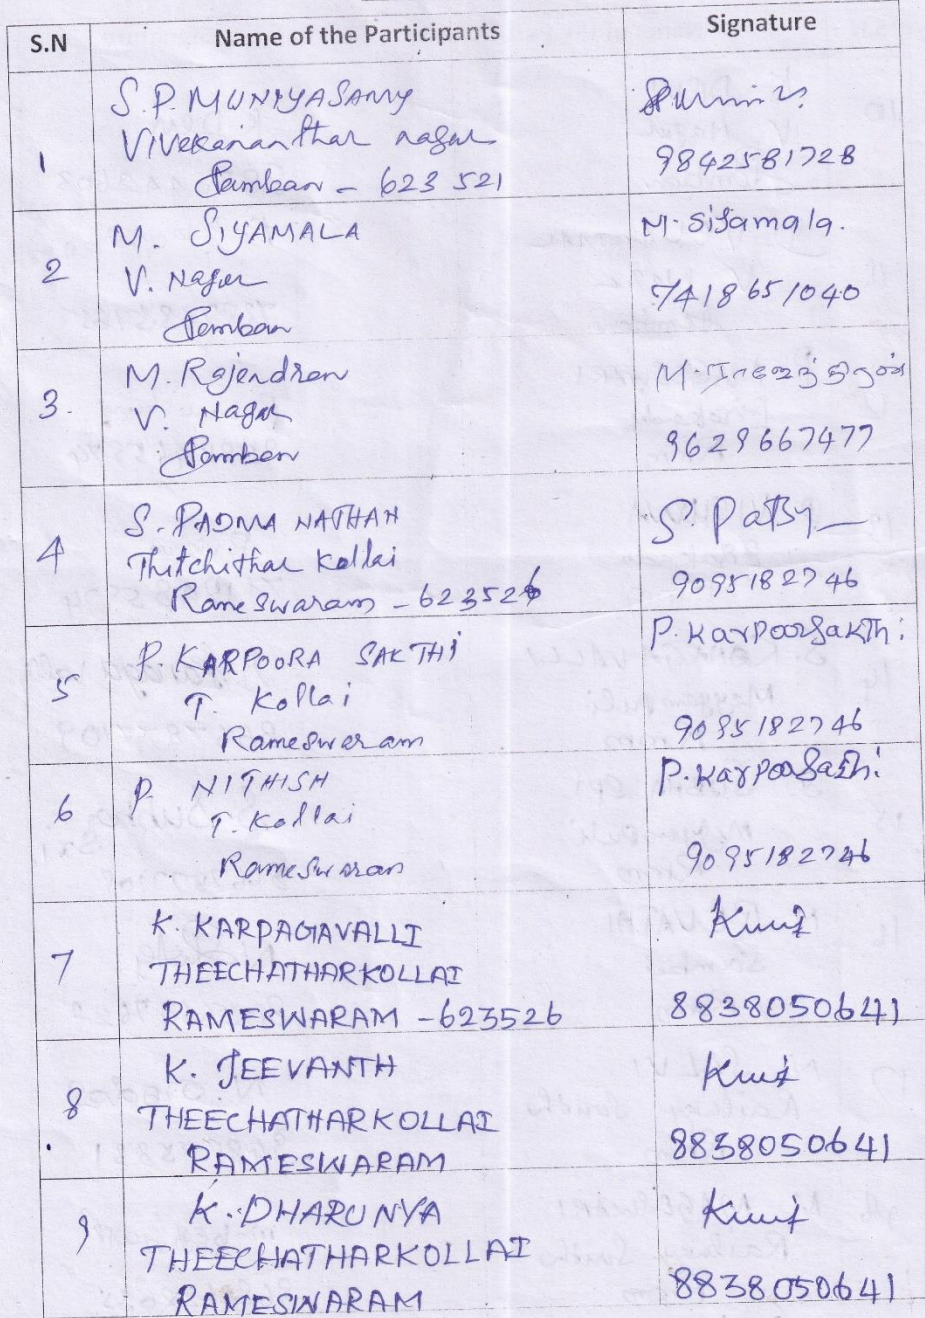 S.N Name of the Participants Signature
1
S.P. MUNIYASAMY
Vivekananthar nagar
Pamban - 623 521
9842581728
2
M. SIYAMALA
V. Nagar
Pamban
M. Siyamala.
7418651040
3.
M. Rajendran
V. Nagar
Pamban
M. ராஜேந்திரன்
9629667477
4
S. PADMA NATHAN
Thitchithar Kollai
Rameswaram - 623526
9095182746
5
P. KARPOORA SAKTHI
T. Kollai
Rameswaram
P. Karpoorsakthi
9095182746
6
P. NITHISH
T. Kollai
Rameswaram
9095182746
7
K. KARPAGAVALLI
THEECHATHARKOLLAI
RAMESWARAM - 623526
8838050641
8
K. JEEVANTH
THEECHATHARKOLLAI
RAMESWARAM
8838050641
9
K. DHARUNYA
THEECHATHARKOLLAI
RAMESWARAM
8838050641